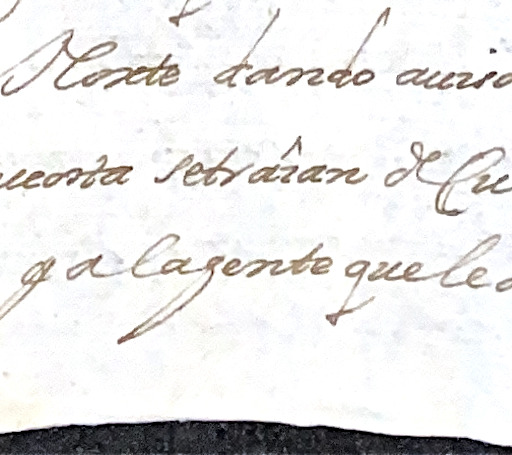 Norte dando auiso
uuesta setraian de Cu
ya lagente que le